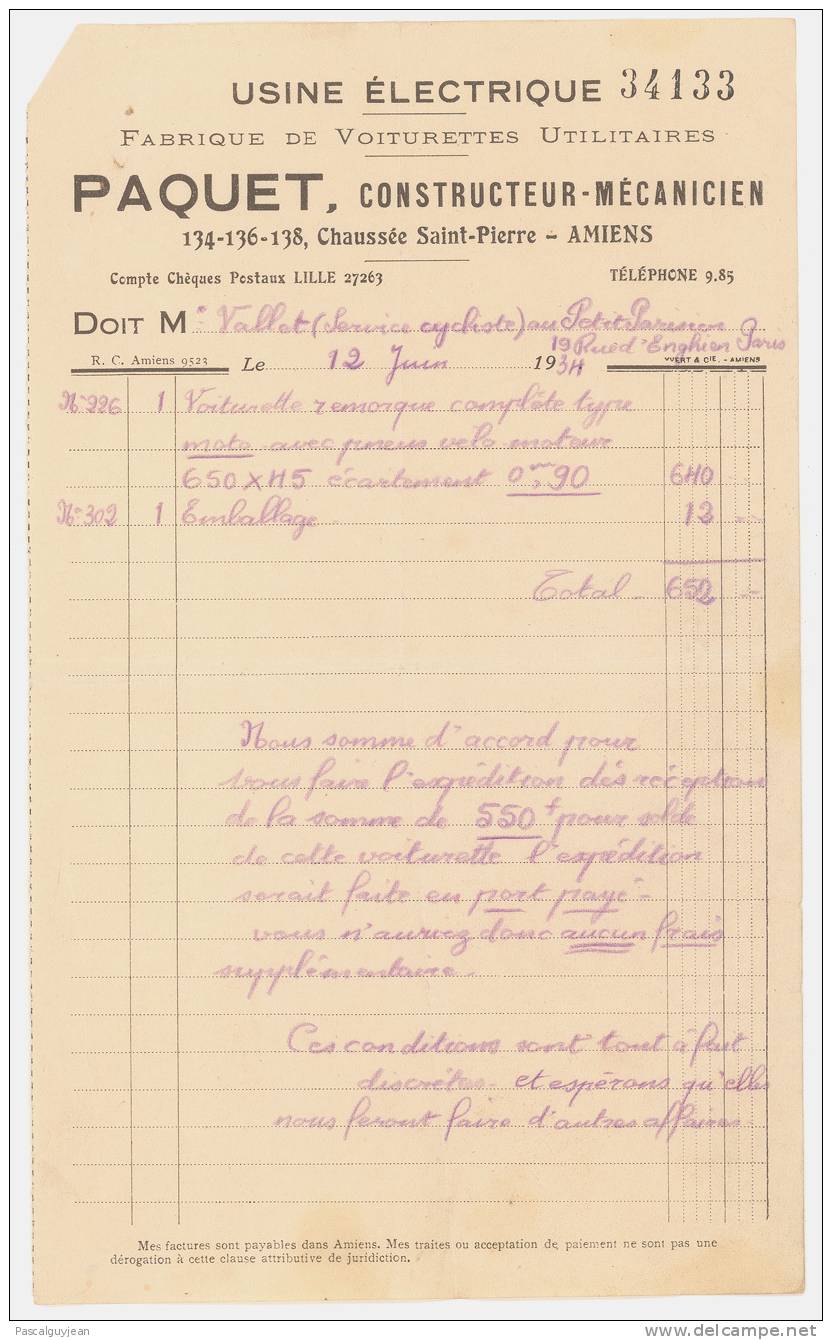 USINE ÉLECTRIQUE 34133
FABRIQUE DE VOITURETTES UTILITAIRES
PAQUET, CONSTRUCTEUR-MÉCANICIEN
134-136-138, Chaussée Saint-Pierre - AMIENS
Compte Chèques Postaux LILLE 27263 TÉLÉPHONE 9.85
DOIT Mr Vallet (Service cycliste) au Petit Parisien
19 Rue d'Enghien Paris
R. C. Amiens 9523 Le 12 Juin 1934 YVERT & CIE. - AMIENS
No 226 1 Voiturette remorque complète type
moto avec pneus vélo moteur
650 x 45 écartement 0m,90 640 --
No 302 1 Emballage. 12 --
Total. 652 --
Nous somme d'accord pour
vous faire l'expédition dès réception
de la somme de 550f pour solde
de cette voiturette l'expédition
serait faite en port payé -
vous n'auriez donc aucun frais
supplémentaire.
Ces conditions sont tout à fait
discrètes - et espérons qu'elles
nous feront faire d'autres affaires.
Mes factures sont payables dans Amiens. Mes traites ou acceptation de paiement ne sont pas une
dérogation à cette clause attributive de juridiction.
Pascalguyjean
delcampe.net